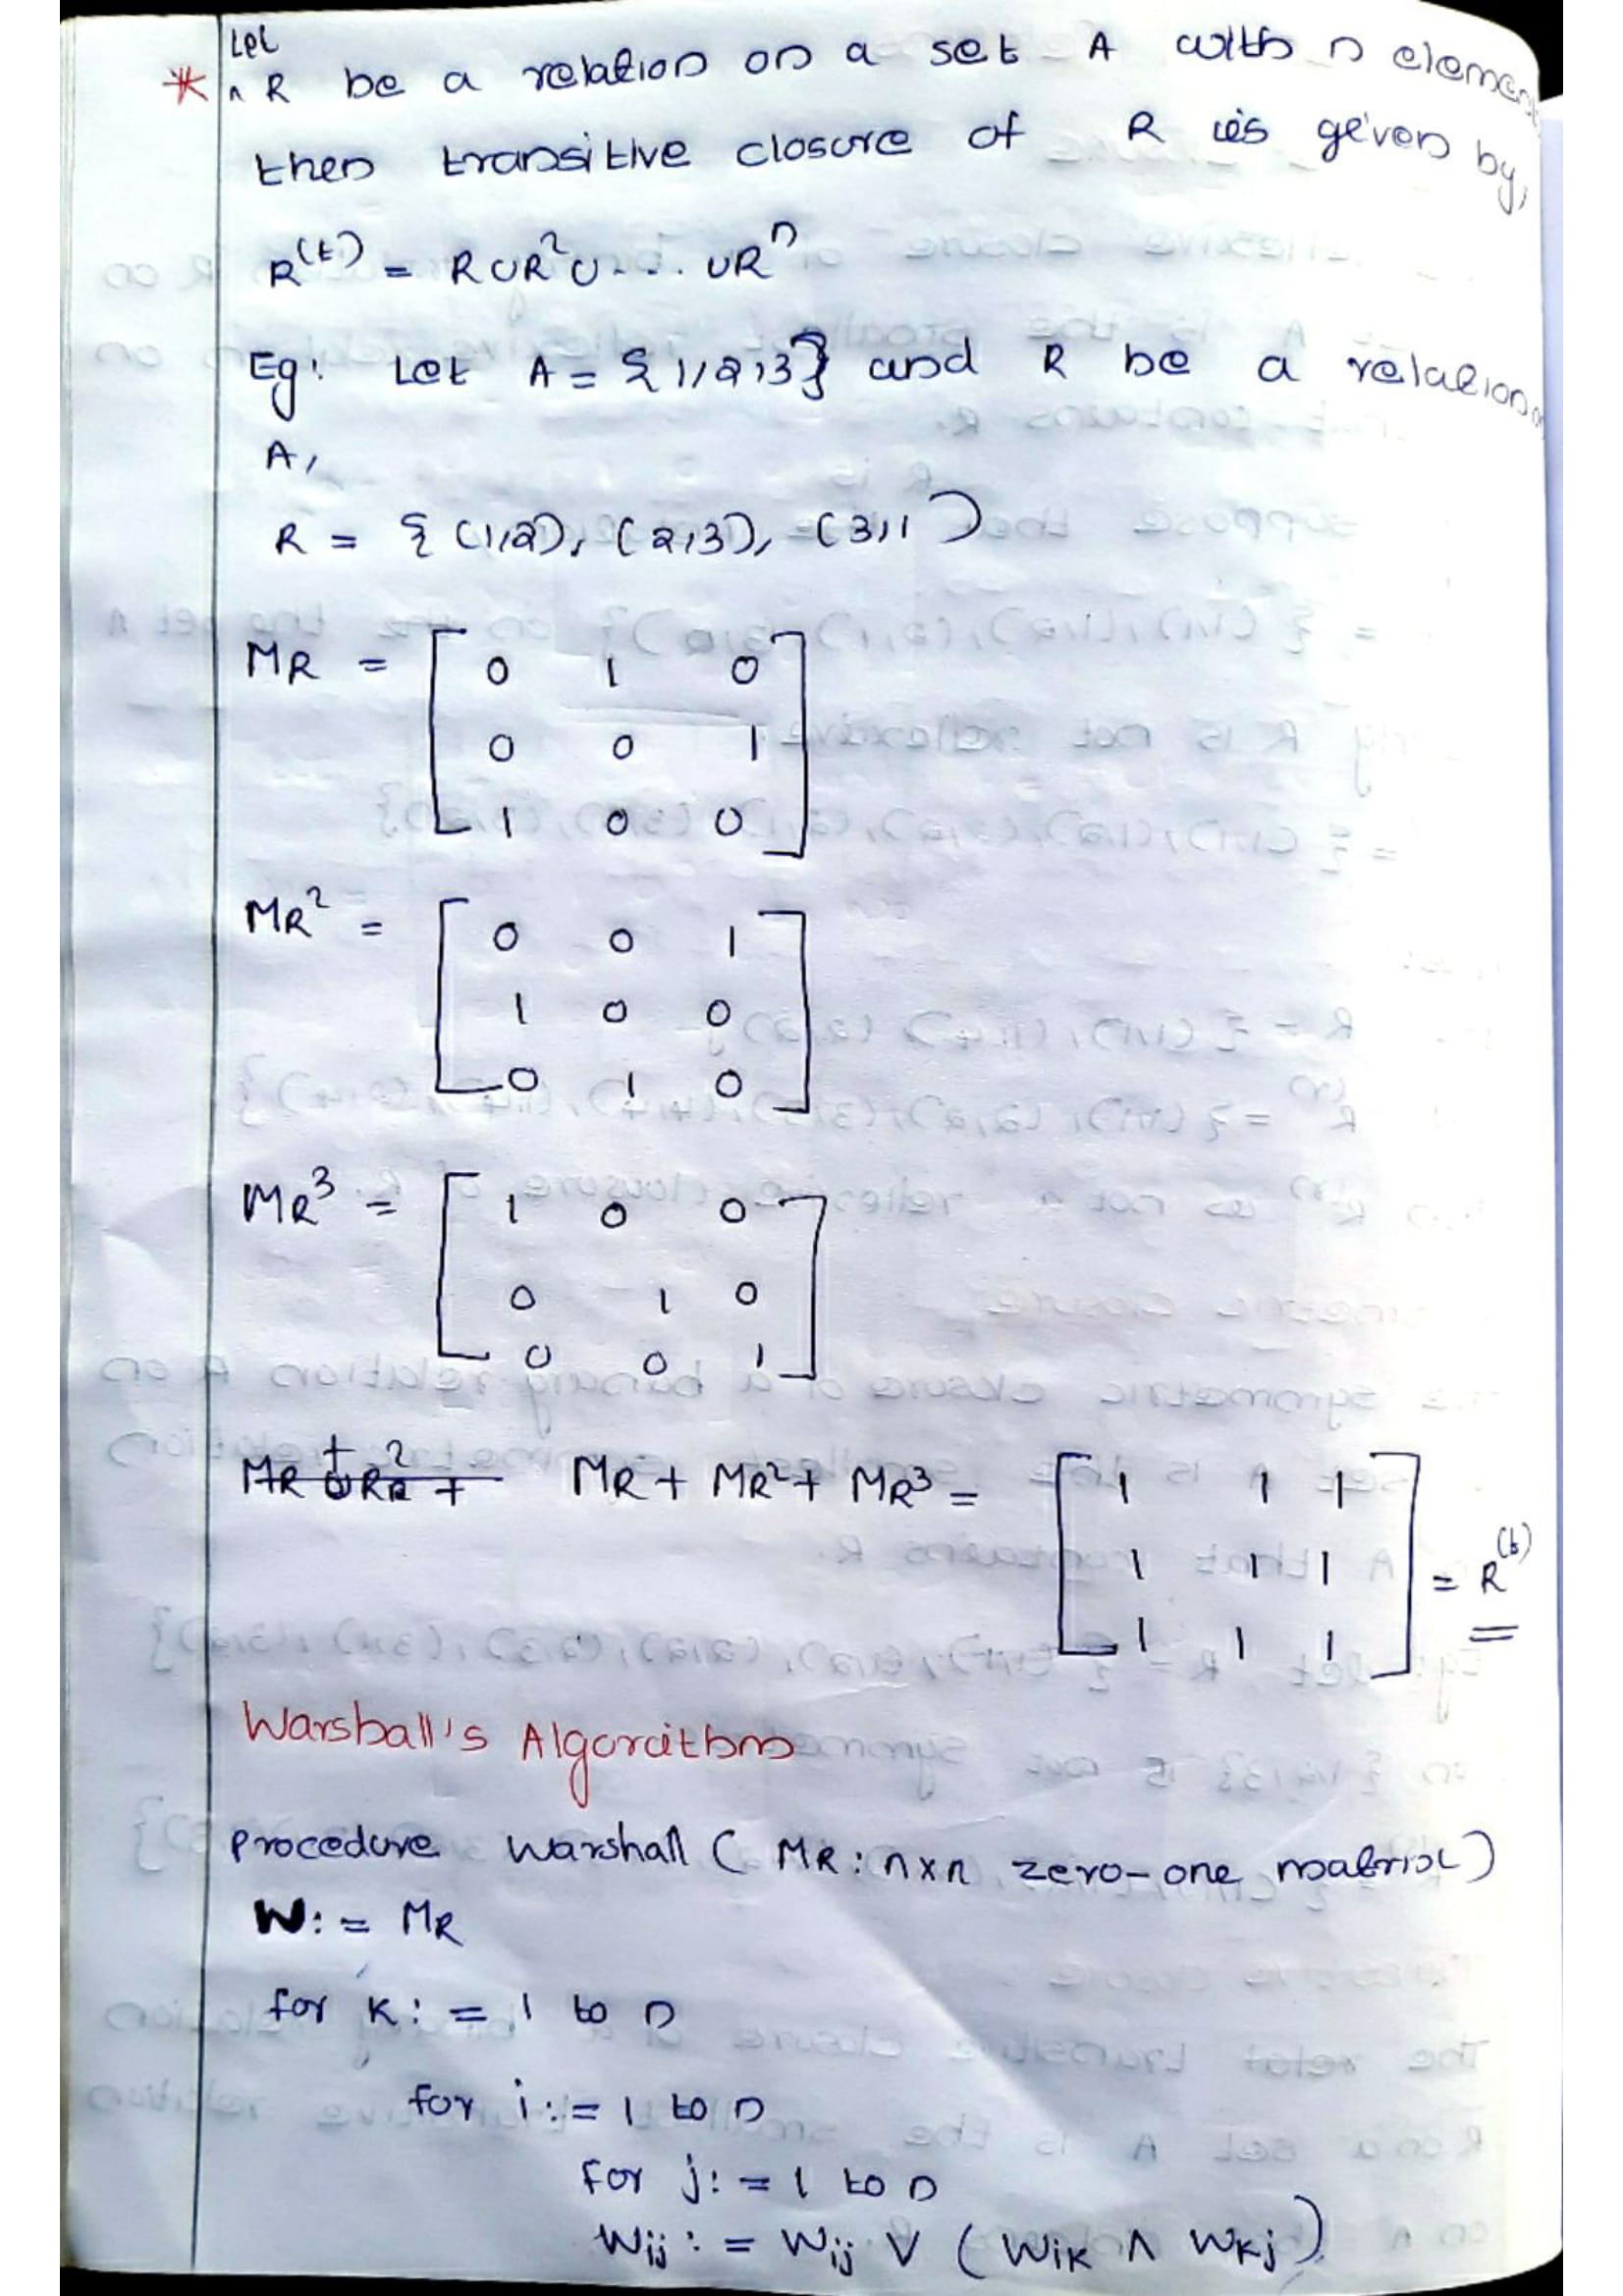 Let
* ^ R be a relation on a set A with n elemen
then transitive closure of R is given by,
R^(t) = R∪R²∪... ∪R^n
Eg: Let A = {1,2,3} and R be a relation
A,
R = { (1,2), (2,3), (3,1)
MR = [ 0 1 0
0 0 1
1 0 0 ]
MR² = [ 0 0 1
1 0 0
0 1 0 ]
MR³ = [ 1 0 0
0 1 0
0 0 1 ]
MR + MR² + MR³ = [ 1 1 1
1 1 1
1 1 1 ] = R^(t)
Warshall's Algorithm
procedure Warshall ( MR : n×n zero-one matrix)
W := MR
for k := 1 to n
for i := 1 to n
for j := 1 to n
Wij := Wij ∨ ( Wik ∧ Wkj )